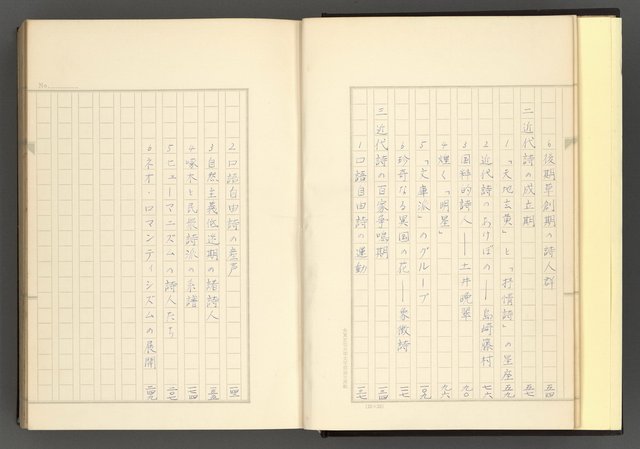 6 後期草創期の詩人群 五四
二 近代詩の成立期 五七
1 「天地玄黄」と「抒情詩」の星座 五九
2 近代詩のあけぼの——島崎藤村 七六
3 国粋的詩人——土井晩翠 九〇
4 煌く「明星」 九六
5 「文庫派」のグループ 一〇九
6 珍奇なる異国の花——象徴詩 一一七
三 近代詩の百家争鳴期 一三四
1 口語自由詩の運動 一三七
2 口語自由詩の産声
3 自然主義低迷期の諸詩人 一五五
4 啄木と民衆詩派の系譜 一七四
5 ヒューマニズムの詩人たち 二〇七
6 ネオ・ロマンティシズムの展開 二四九
No.